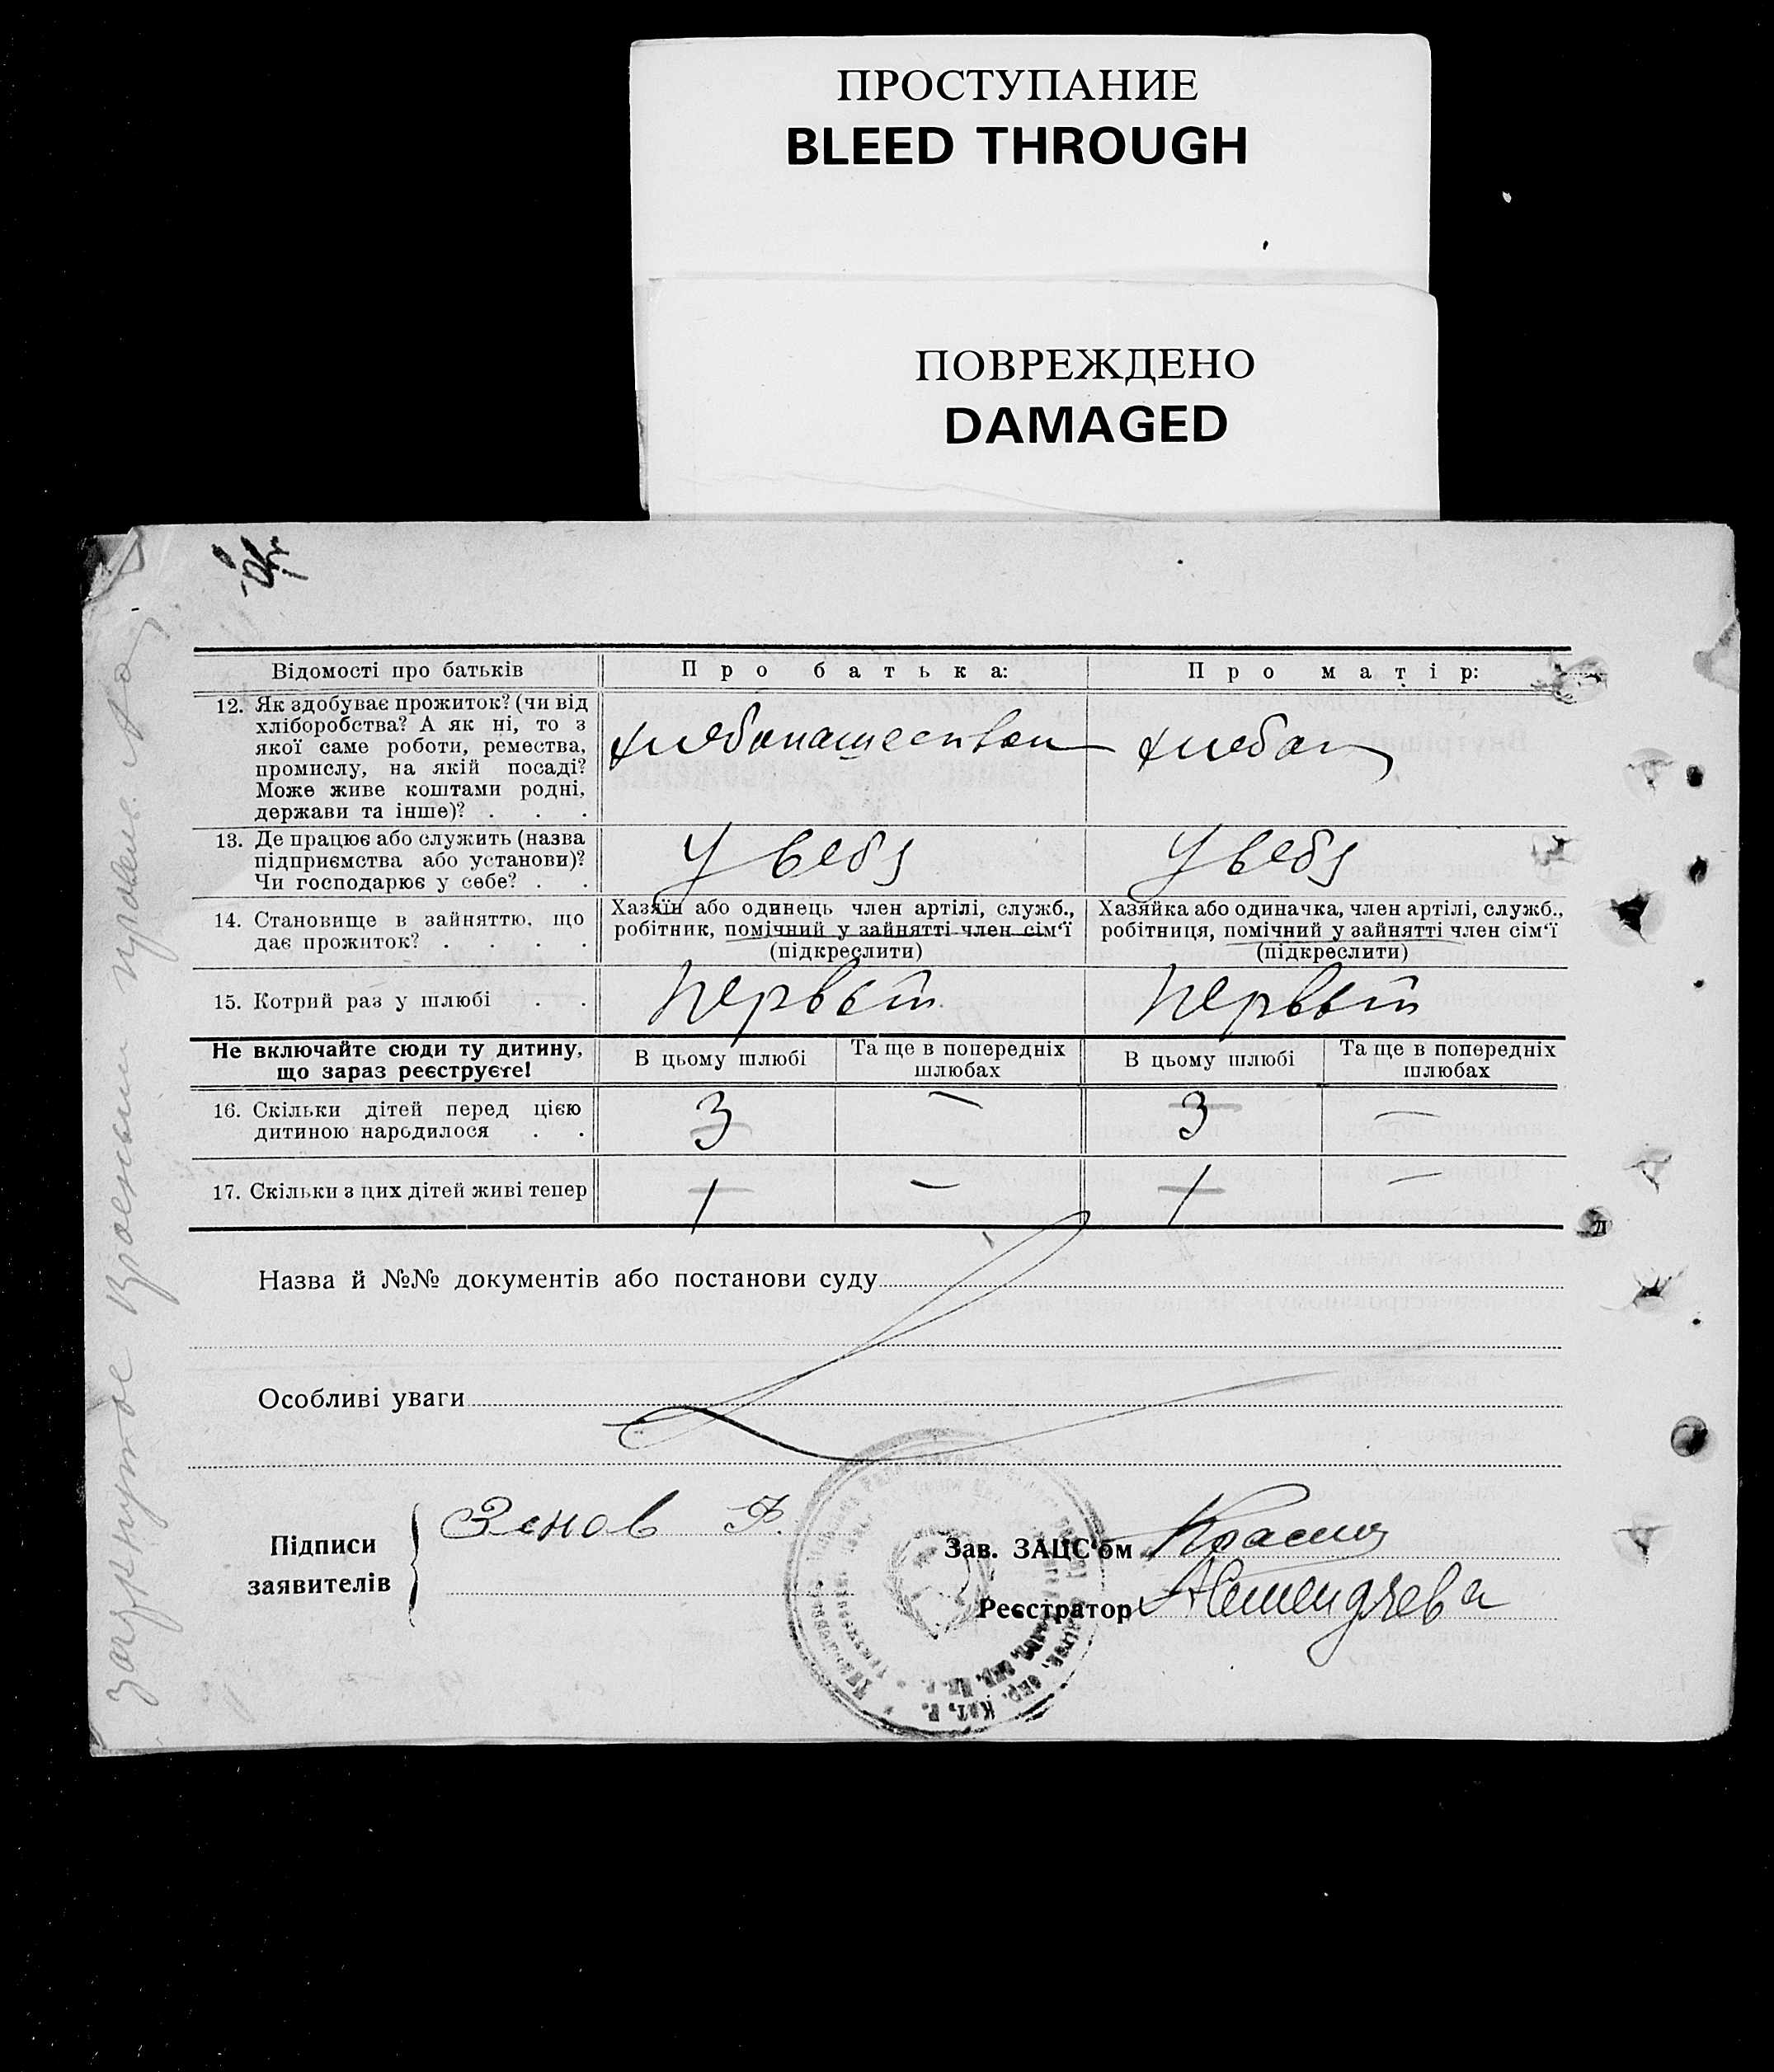 ПРОСТУПАНИЕ
BLEED THROUGH
ПОВРЕЖДЕНО
DAMAGED
Відомості про батьків
Про батька:
Про матір:
12. Як здобуває прожиток? (чи від
хліборобства? А як ні, то з
якої саме роботи, ремества,
промислу, на якій посаді?
Може живе коштами родні,
держави та інше)? . . .
хлебопашеством
хлебоп
13. Де працює або служить (назва
підприємства або установи)?
Чи господарює у себе? . .
У себя
У себя
14. Становище в зайняттю, що
дає прожиток? . . . .
Хазяїн або одинець член артілі, служб.,
робітник, помічний у зайнятті член сім'ї
(підкреслити)
Хазяйка або одиначка, член артілі, служб.,
робітниця, помічний у зайнятті член сім'ї
(підкреслити)
15. Котрий раз у шлюбі . .
первый
первый
Не включайте сюди ту дитину,
що зараз реєструєте!
В цьому шлюбі
Та ще в попередніх
шлюбах
В цьому шлюбі
Та ще в попередніх
шлюбах
16. Скільки дітей перед цією
дитиною народилося . .
3 — 3 —
17. Скільки з цих дітей живі тепер
1 — 1 —
Назва й №№ документів або постанови суду
Особливі уваги
Підписи
заявителів
Зенов Ф.
Зав. ЗАЦС'ом
Реєстратор